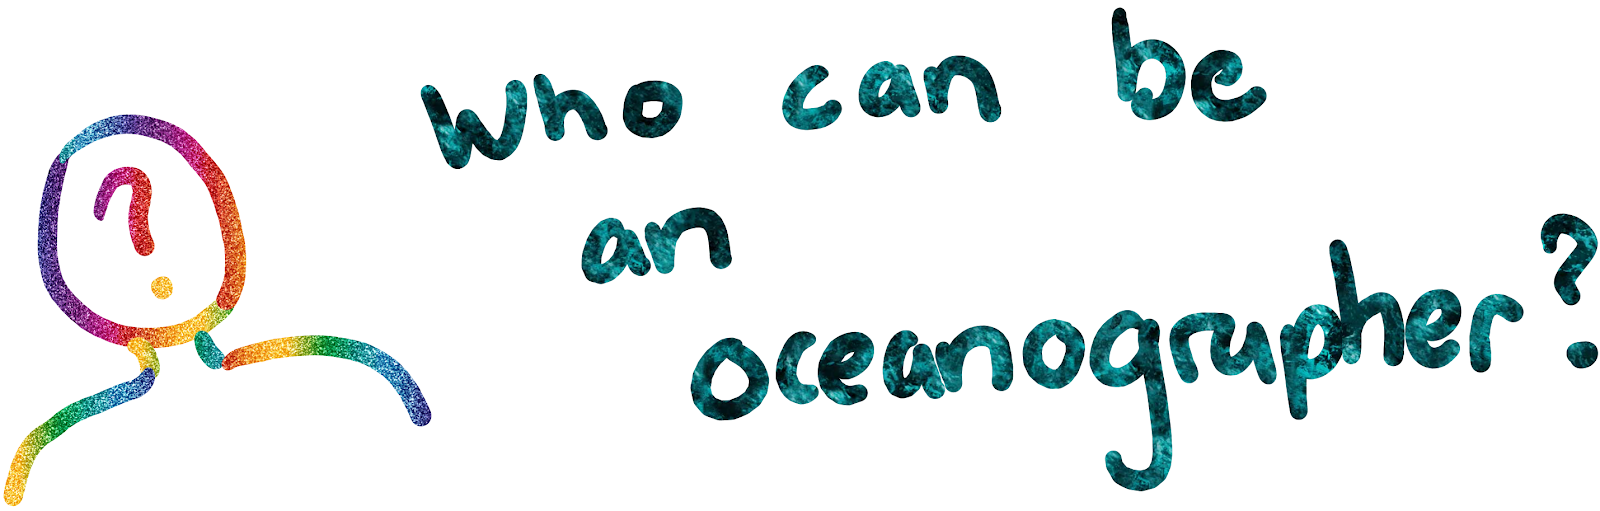 ?
Who can be
an
oceanographer?